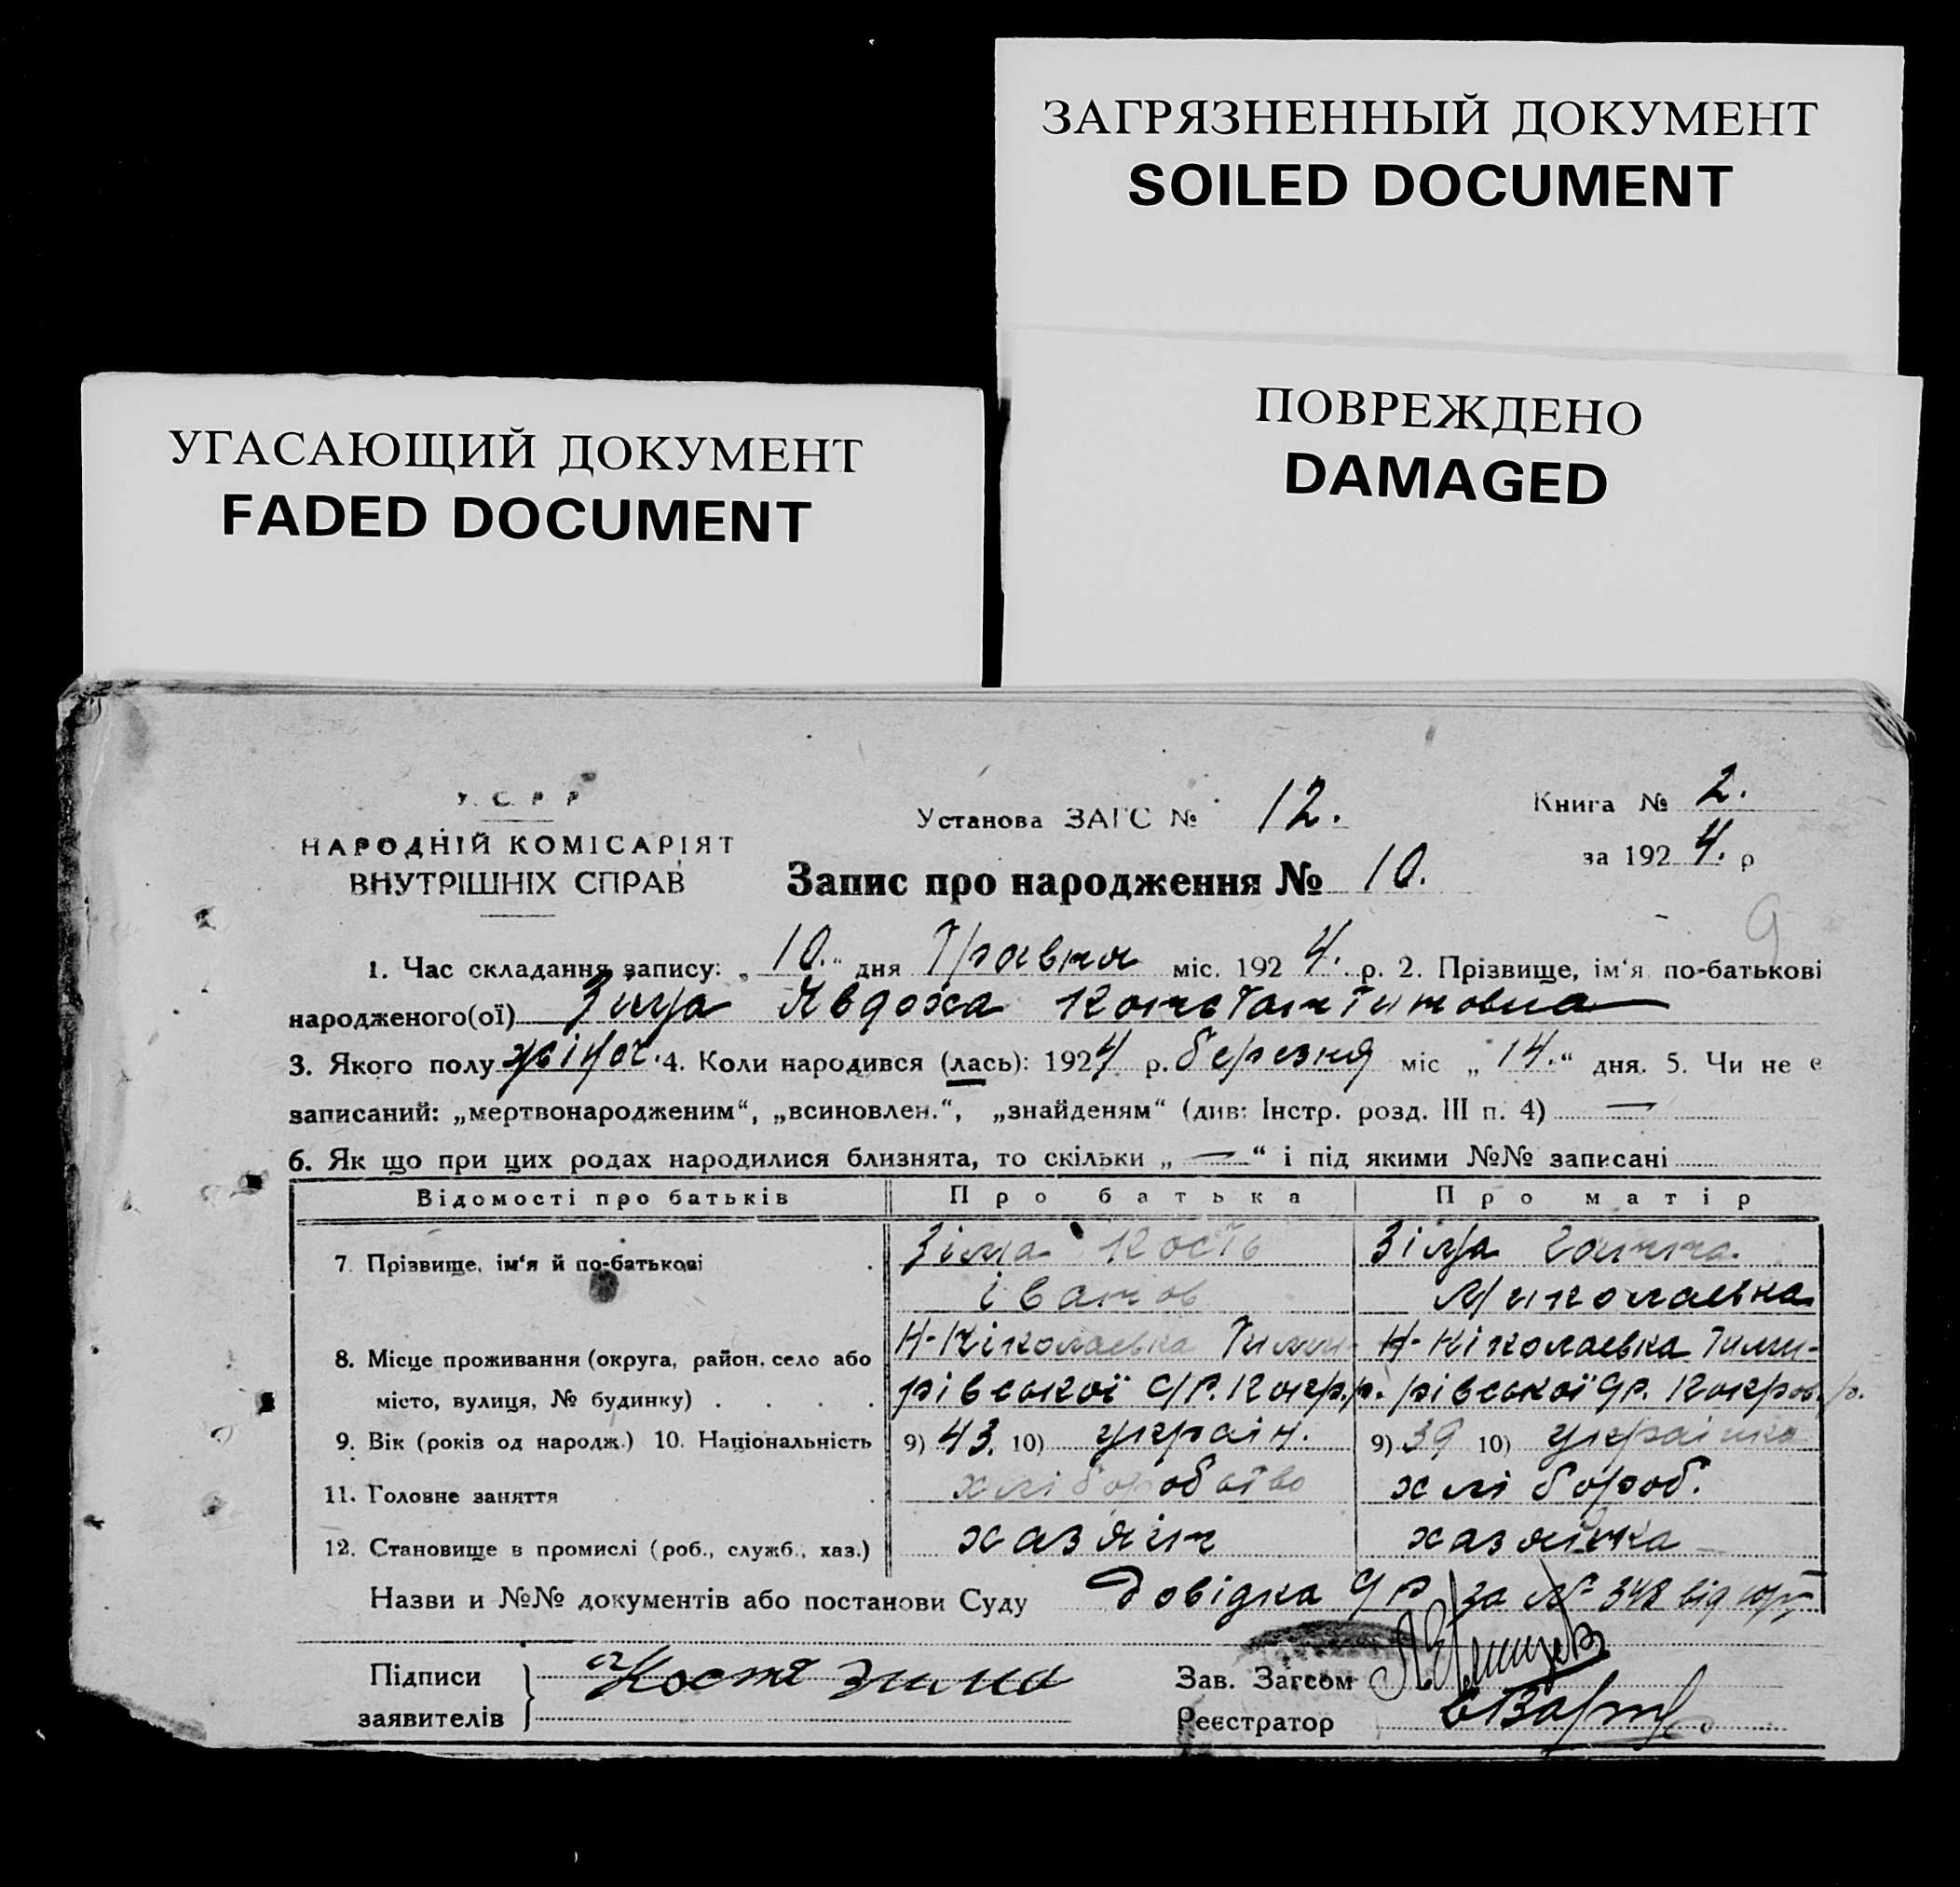 ЗАГРЯЗНЕННЫЙ ДОКУМЕНТ
SOILED DOCUMENT
ПОВРЕЖДЕНО
DAMAGED
УГАСАЮЩИЙ ДОКУМЕНТ
FADED DOCUMENT
У. С. Р. Р
НАРОДНІЙ КОМІСАРІЯТ
ВНУТРІШНІХ СПРАВ
Установа ЗАГС № 12.
Запис про народження № 10.
Книга № 2.
за 1924. р
9
1. Час складання запису: „10.“ дня Травня міс. 1924. р. 2. Прізвище, ім‘я по-батькові
народженого(ої) Зіма Явдоха Константиновна
3. Якого полу жіноч. 4. Коли народився (лась): 1924 р. березня міс „14.“ дня. 5. Чи не є
записаний: „мертвонародженим“, „всиновлен.“, „знайденям“ (див: Інстр. розд. III п. 4) —
6. Як що при цих родах народилися близнята, то скільки „—“ і під якими №№ записані
Відомості про батьків Про батька Про матір
7. Прізвище, ім‘я й по-батькові Зіма Кость Зіма Ганна
Іванов Миколаевна
8. Місце проживання (округа, район, село або Н-Ніколаевка Н-Ніколаевка
місто, вулиця, № будинку)
9. Вік (років од народж.) 10. Національність 9) 43. 10) україн. 9) 39 10) українка
11. Головне заняття хліборобство хлібороб.
12. Становище в промислі (роб., служб., хаз.) хазяін хазяйка
Назви и №№ документів або постанови Суду Довідка за № 348 від
Підписи
заявителів Костя зима
Зав. Загсом
Реєстратор